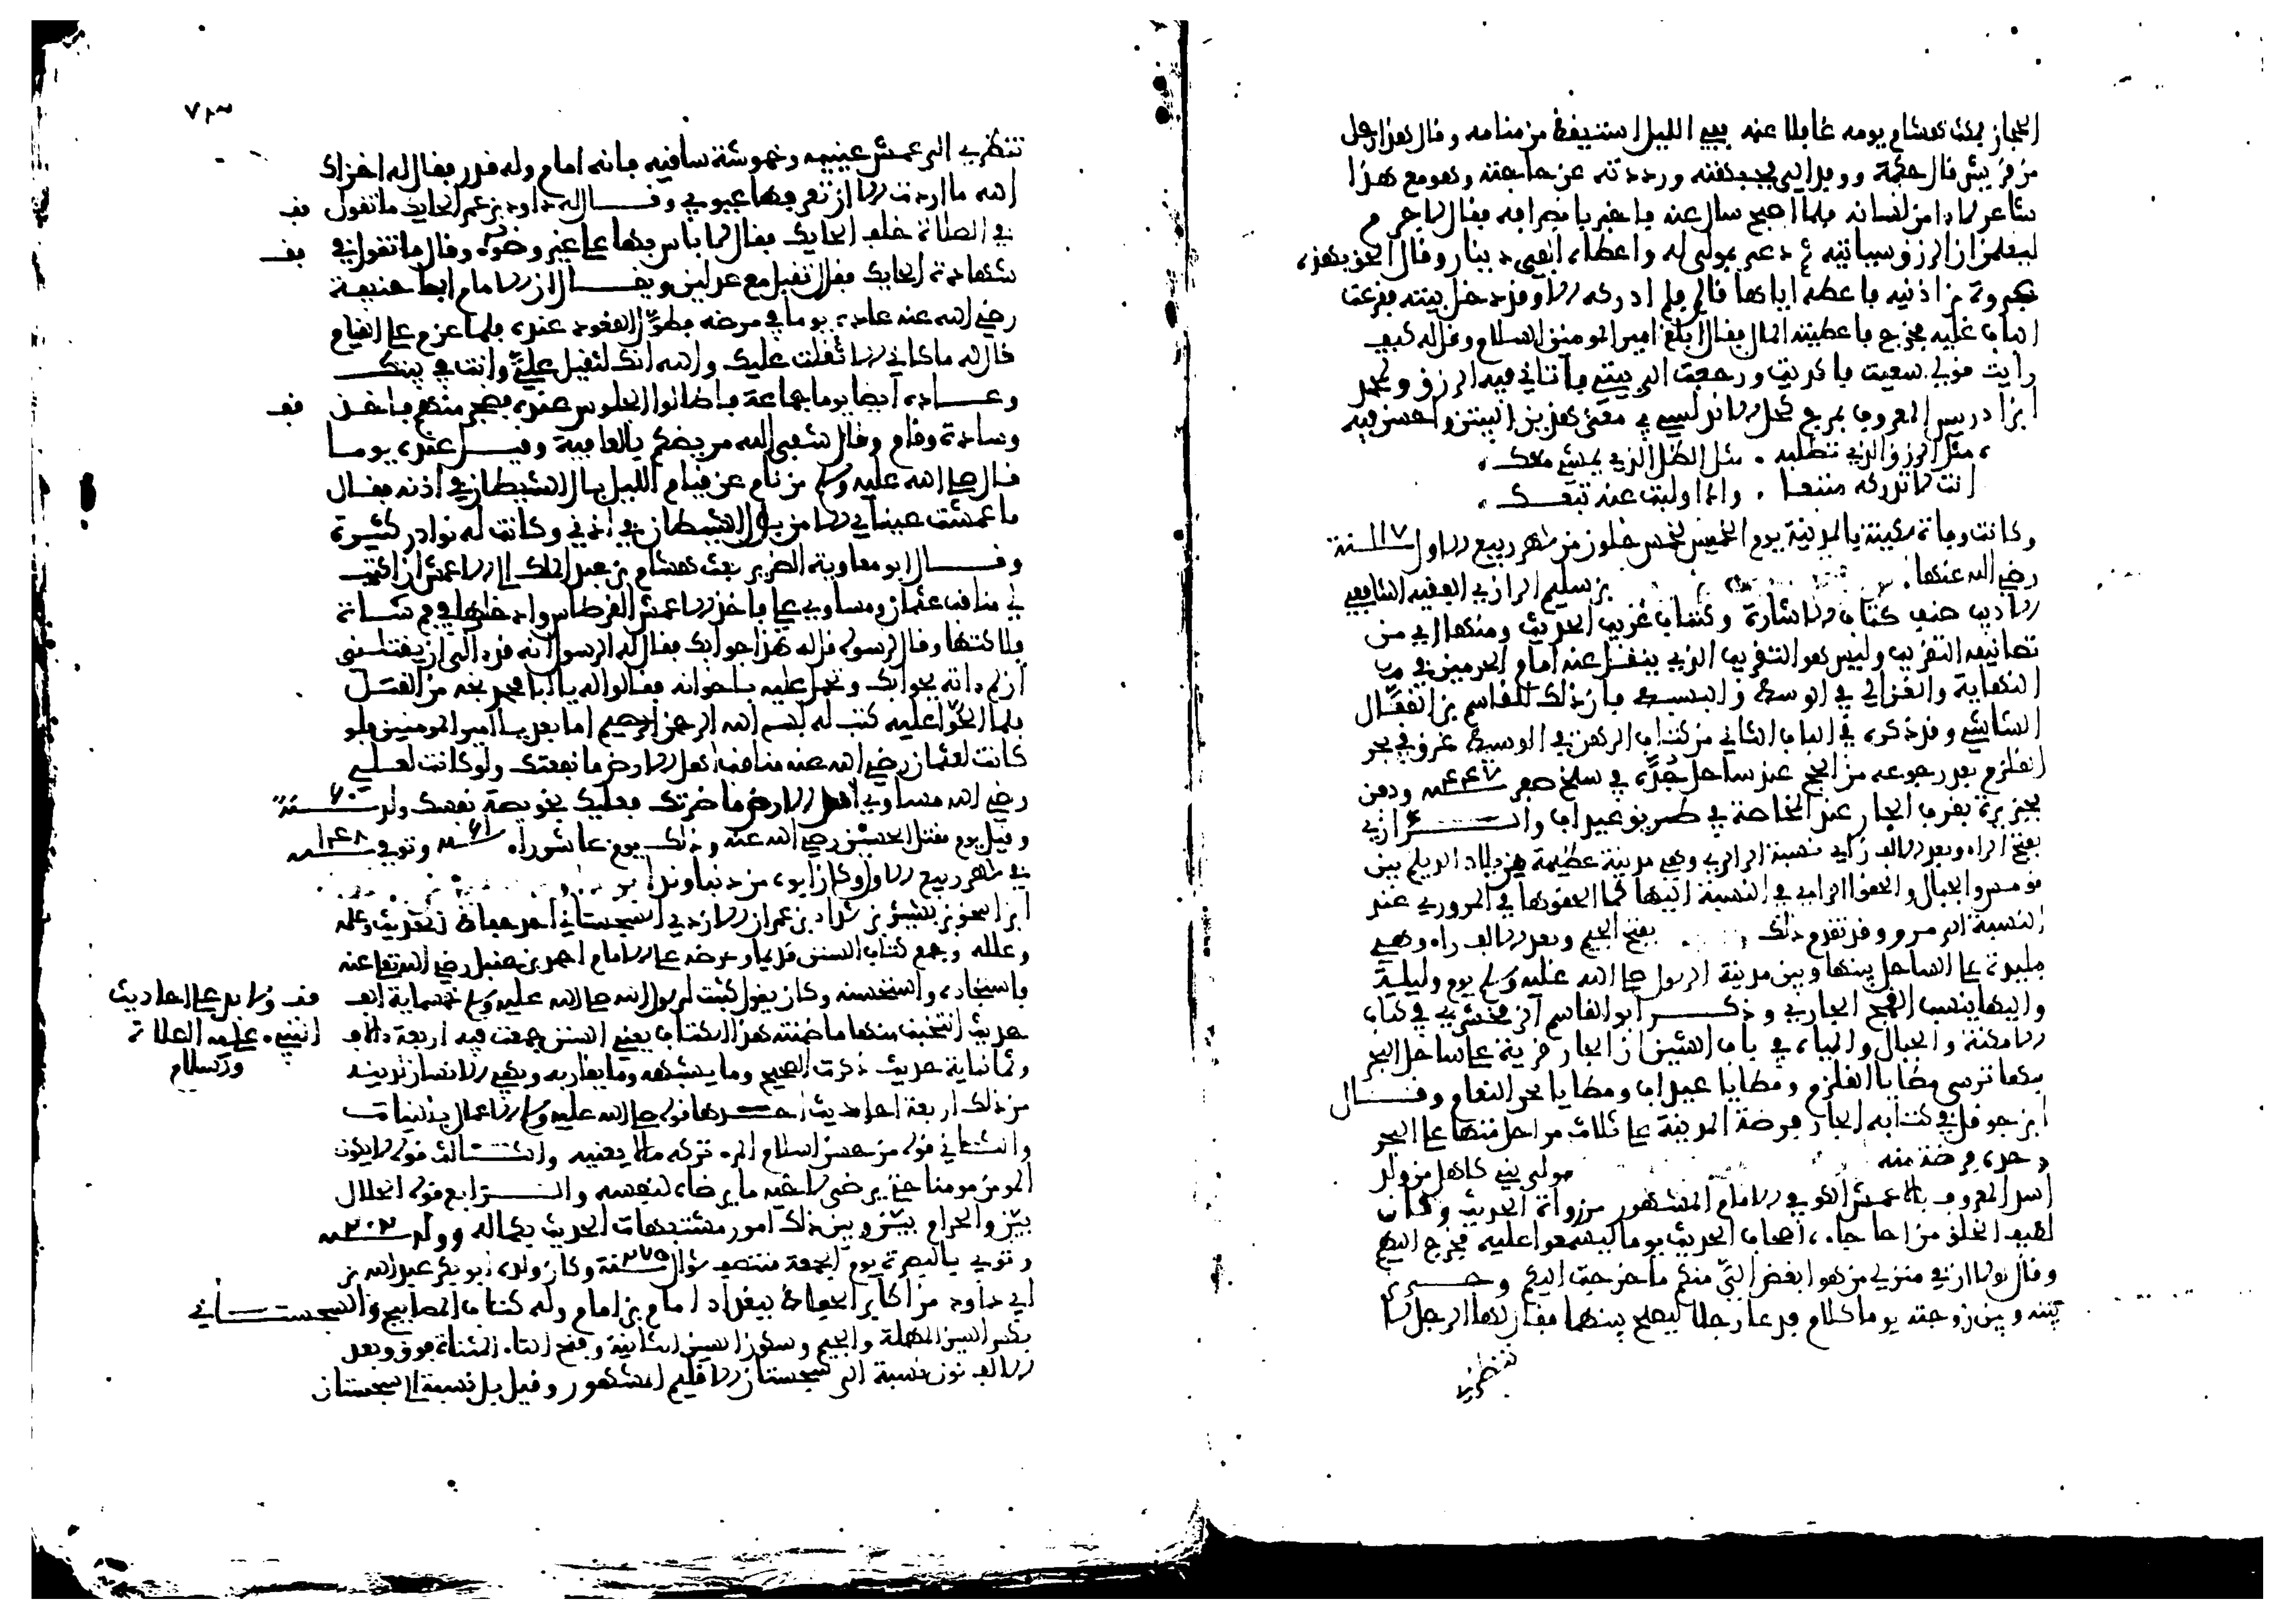 الحجاز بمكث هشام يومه غابلا عنه ففي الليل استيقظ من منامه وقال هذا رجل
من قريش قال حكمة ووفد إلي فجبهته ورددته عن حاجته وهو مع هذا
شاعر لا ءامن لسانه فلما اصبح سال عنه فاخبر بانصرافه فقال لا جرم
ليعلمن ان الرزق سياتيه ثم دعى بمولى له واعطاه الفي دينار وقال الحق بهذه
عروة بن اذينه فاعطه اياها قال فلم ادركه الا وقد دخل بيته فقرعت
الباب عليه فخرج فاعطيته المال فقال ابلغ امير المومنين السلام وقل له كيف
رايت قولي سعيت فاكديت ورجعت الى بيتي فاتاني فيه الرزق ولمحمد
ابن ادريس المعروف بمرج كحل الاندلسي في معنى هذين البيتين واحسن فيه
مثل الرزق الذي تطلبه . مثل الظل الذي يمشي معك
انت لا تدركه متبعا . واذا وليت عنه تبعك
وكانت وفاة سكينة بالمدينة يوم الخميس لخمس خلون من شهر ربيع الاول سنة ١١٧
رضي الله عنها. بن سليم الرازي الفقيه الشافعي
الاديب صنف كتاب الاشارة وكتاب غريب الحديث ومنها في من
تصانيفه التقريب وليس هو التقريب الذي ينقل عنه امام الحرمين في
النهاية والغزالي في الوسيط والبسيط فان ذلك للقاسم بن القفال
الشاشي وقد ذكره في الباب الثاني من كتاب الرهن في الوسيط غرق في بحر
القلزم بعد رجوعه من الحج عند ساحل جدة في سلخ صفر ٤٤٧ ودفن
بجزيرة بقرب الجار عند المخاضة في طريق عيذاب والرازي
بفتح الراء وبعد الالف زاي نسبة الى الري وهي مدينة عظيمة من بلاد الديلم بين
قومس والجبال والحقوا الزاي في النسبة اليها كما الحقوها في المروزي عند
النسبة الى مرو وقد تقدم ذلك بفتح الجيم وبعد الالف راء وهي
بليدة على الساحل بينها وبين مدينة الرسول صلى الله عليه وسلم يوم وليلة
واليها ينسب القمح الجاري وذكر ابو القاسم الزمخشري في كتاب
الامكنة والجبال والمياه في باب الشين ان الجار قرية على ساحل البحر
بها ترسى مطايا القلزم ومطايا عيذاب ومطايا بحر النعام وقال
ابن حوقل في كتابه الجار فرضة المدينة على ثلاث مراحل منها على البحر
وجدة فرضة مكة مولى بني كاهل من ولد
اسد المعروف بالاعمش الكوفي الامام المشهور من رواة الحديث وكان
لطيف الخلق مزاحا جاءه اصحاب الحديث يوما ليسمعوا عليه فخرج اليهم
وقال لولا ان في منزلي من هو ابغض الي منكم ما خرجت اليكم وجرى
بينه وبين زوجته يوما كلام فدعا رجلا ليصلح بينهما فقال لها الرجل لا
تنظري
٧٣
تنظري الى عمش عينيه وخموشة ساقيه فانه امام وله قدر فقال له اخزاك
الله ما اردت الا ان تعرفها عيوبي وقال له داود بن عمر الحايك ما تقول
في الصلاة خلف الحايك فقال لا باس بها على غير وضوء وقال ما تقول في
شهادة الحايك فقال تقبل مع عدلين ويقال ان الامام ابا حنيفة
رضي الله عنه عاده يوما في مرضه فطول القعود عنده فلما عزم على القيام
قال له ما كاني الا ثقلت عليك والله انك لثقيل علي وانت في بيتك
وعاده ايضا يوما جماعة فاطالوا الجلوس عنده فضجر منهم فاخذ
وسادة وقام وقال شفى الله مريضكم بالعافية وقيل عنده يوما
قال صلى الله عليه وسلم من نام عن قيام الليل بال الشيطان في اذنه فقال
ما عمشت عيناي الا من بول الشيطان في اذني وكانت له نوادر كثيرة
وقال ابو معاوية الضرير بعث هشام بن عبد الملك الى الاعمش ان اكتب
لي مناقب عثمان ومساوي علي فاخذ الاعمش القرطاس وادخلها في فم شاة
فلاكتها وقال لرسوله قل له هذا جوابك فقال له الرسول انه قد ءالى ان يقتلني
ان لم ءاته بجوابك وتحمل عليه باخوانه فقالوا له يا ابا محمد نجه من القتل
فلما الحوا عليه كتب له بسم الله الرحمن الرحيم اما بعد يا امير المومنين فلو
كانت لعثمان رضي الله عنه مناقب اهل الارض ما نفعتك ولو كانت لعلي
رضي الله مساوي اهل الارض ما ضرتك فعليك بخويصة نفسك ولد سنة ٦٠
وقيل يوم مقتل الحسين رضي الله عنه وذلك يوم عاشوراء ٦١ وتوفي ١٤٨
في شهر ربيع الاول وكان ابوه من دنباوند
ابن اسحق بن بشير بن شداد بن عمران الازدي السجستاني احد حفاظ الحديث وعلمه
وعلله وجمع كتاب السنن قديما وعرضه على الامام احمد بن حنبل رضي الله تعلى عنه
فاستجاده واستحسنه وكان يقول كتبت لرسول الله صلى الله عليه وسلم خمسماية الف
حديث انتخبت منها ما ضمنته هذا الكتاب يعني السنن جمعت فيه اربعة ءالاف
وثمانماية حديث ذكرت الصحيح وما يشبهه وما يقاربه ويكفي الانسان لدينه
من ذلك اربعة احاديث احدها قوله صلى الله عليه وسلم الاعمال بالنيات
والثاني قوله من حسن اسلام المرء تركه ما لا يعنيه والثالث قوله لا يكون
المومن مومنا حتى يرضى لاخيه ما يرضاه لنفسه والرابع قوله الحلال
بين والحرام بين وبين ذلك امور مشتبهات الحديث بكماله وولد ٢٠٢
وتوفي بالبصرة يوم الجمعة منتصف شوال سنة ٢٧٥ وكان ولده ابو بكر عبد الله بن
ابي داود من اكابر الحفاظ ببغداد امام بن امام وله كتاب المصابيح والسجستاني
بكسر السين المهملة والجيم وسكون السين الثانية وفتح التاء المثناة فوق وبعد
الالف نون نسبة الى سجستان الاقليم المشهور وقيل بل نسبة الى سجستان
قف
قف
قف
قف
الاحاديث
عليه الصلاة
والسلام